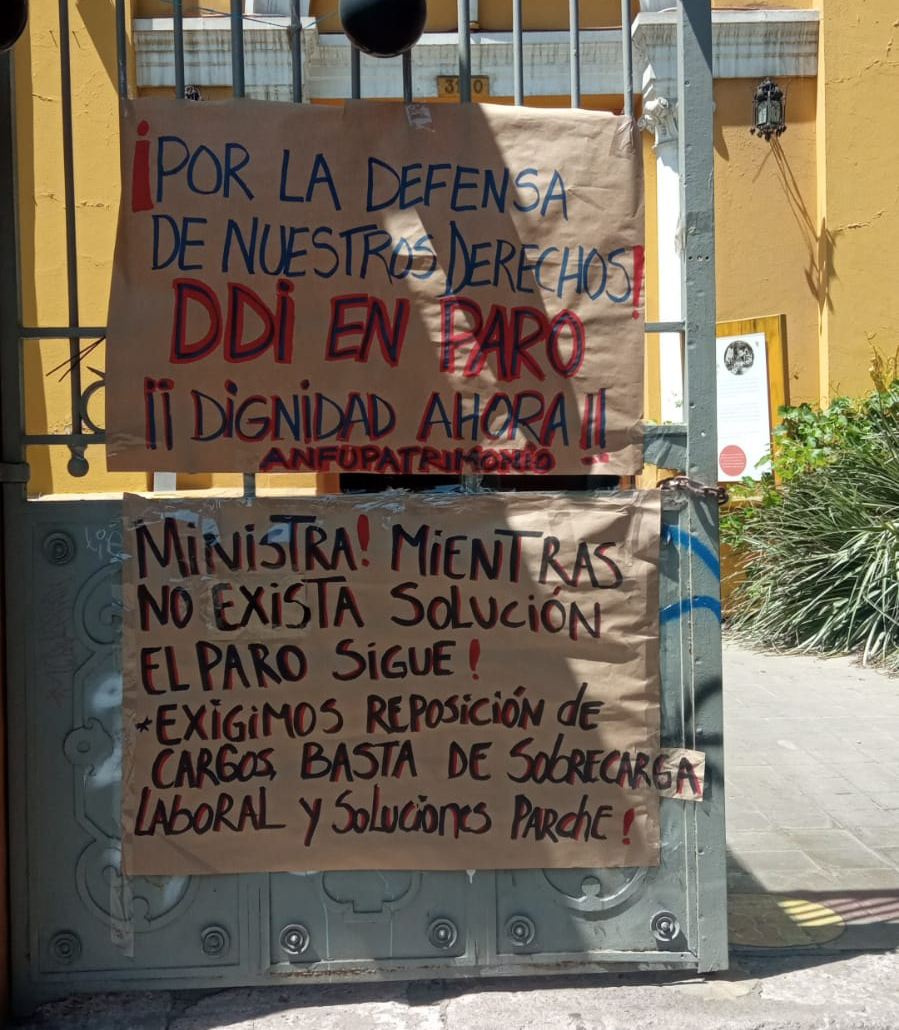 ¡POR LA DEFENSA
DE NUESTROS DERECHOS!
DDi EN PARO
¡¡DiGNiDAD AHORA!!
ANFUPATRIMONIO
MiNiSTRA! MiENTRAS
NO EXiSTA SOLUCIÓN
EL PARO SiGUE!
*EXIGiMOS REPOSiCiÓN de
CARGOS, BASTA DE SobRECARGA
LABORAL Y SoLuciones PARchE!